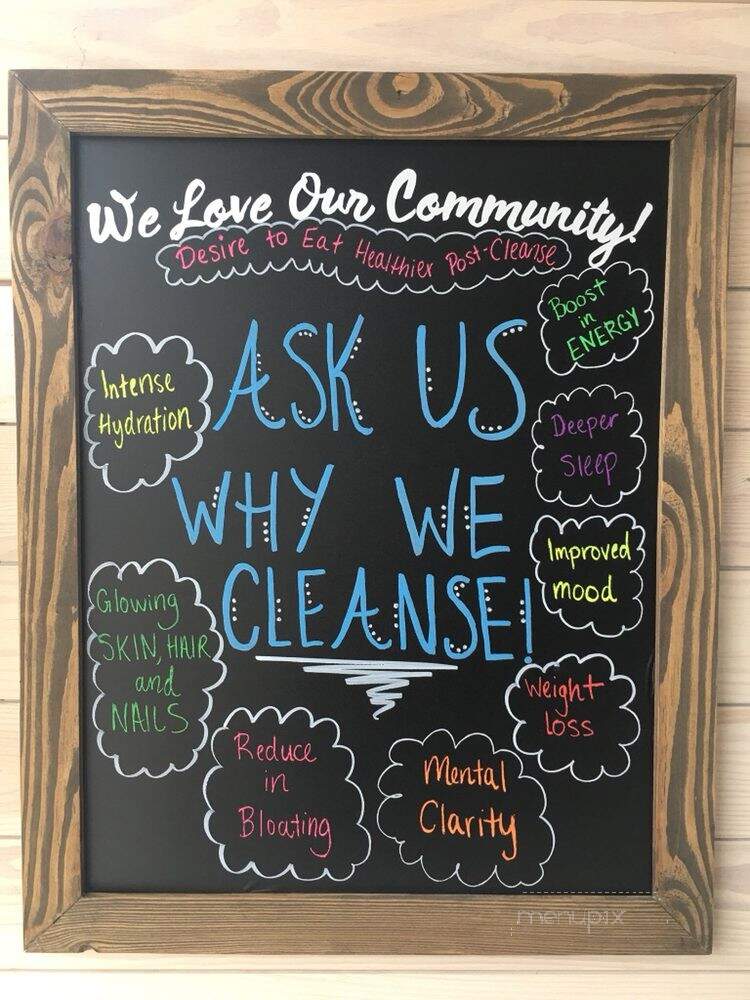 We Love Our Community!
Desire to Eat Healthier Post-Cleanse
Boost
in
ENERGY
Intense
Hydration
ASK US
Deeper
Sleep
WHY WE
Improved
mood
CLEANSE!
Glowing
SKIN, HAIR
and
NAILS
Weight
loss
Reduce
in
Bloating
Mental
Clarity
menupix